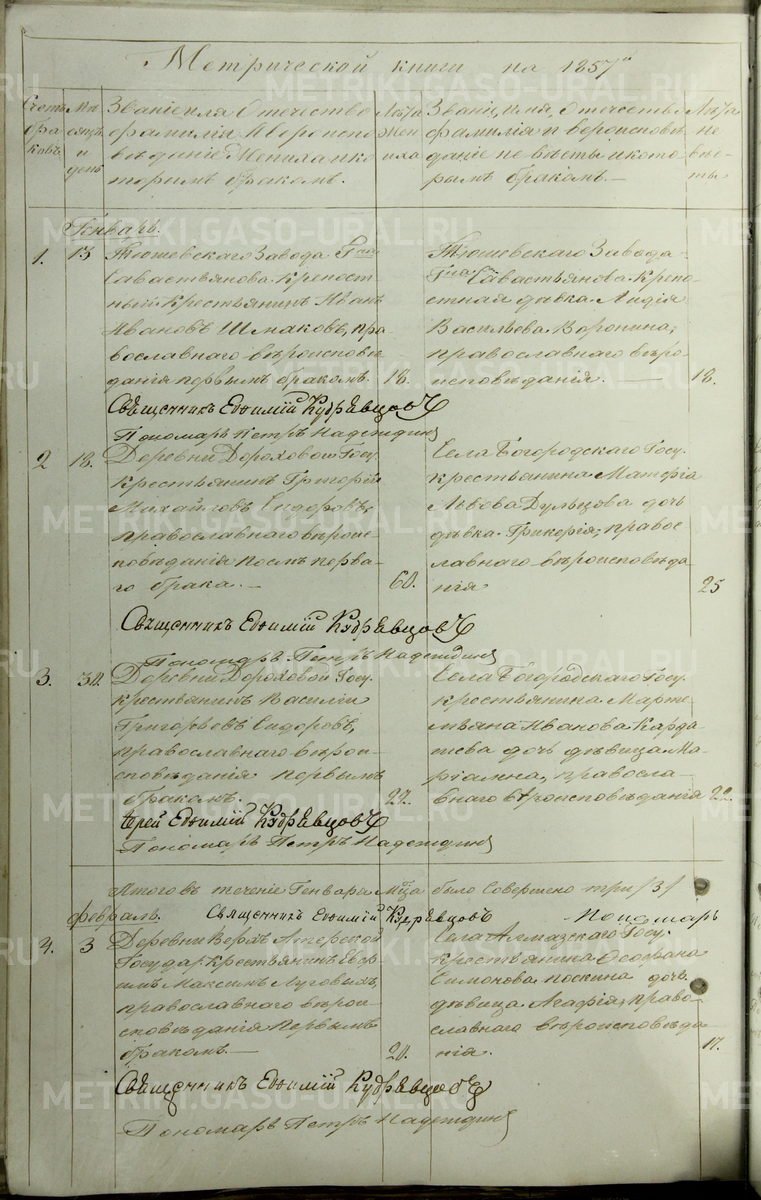 Метрической книги на 1857й
Счетъ браковъ.
Мѣсяцъ и день
Званіе имя Отечество
фамилія и вѣроиспо
вѣданіе Жениха и ко
торымъ бракомъ.
Лѣта жениха
Званіе, имя, Отчество
фамилія и вѣроисповѣ
даніе невѣсты и кото
рымъ бракомъ. —
Лѣта невѣсты
Генварь.
1.
13
Тюшевскаго Завода Гна
Савастьянова. крѣпост
ный крестьянинъ Иванъ
Ивановъ Шмаковъ, пра
вославнаго вѣроисповѣ
данія первымъ бракомъ.
18.
Тюшевскаго Завода
Гна Савастьянова Крѣпо
стная дѣвка. Лидія
Васильева Воронина,
православнаго вѣро
исповѣданія. —
18.
Священникъ Евфимій Кудрявцовъ
Пономарь Петръ Надеждинъ
2
18.
Деревни Дороховой Госу.
крестьянинъ Григорій
Михайловъ Сидоровъ,
православнаго вѣроис
повѣданія послѣ перва
го брака. —
60.
Села Богородскаго Госу.
крестьянина
Львова Дульцова дочь
дѣвка. правос
лавнаго вѣроисповѣда
нія
25
Священникъ Евфимій Кудрявцовъ
Пономарь Петръ Надеждинъ
3.
Деревни Дороховой Госу.
крестьянинъ Василій
Григорьевъ Сидоровъ,
православнаго вѣрои
сповѣданія первымъ
бракомъ.
22.
Села Богородскаго Госу.
крестьянина Марте
мьяна Иванова Карда
шева дочь дѣвица Ма
ріамна, правосла
внаго вѣроисповѣданія
22.
Іерей Евфимій Кудрявцовъ
Пономарь Петръ Надеждинъ
Итого въ теченіе Генваря Мца было совершено три /3/
Священникъ Евфимій Кудрявцовъ Пономарь
февраль.
4.
3
Деревни Верхъ
Государ. крестьянинъ
Максимъ Луговыхъ,
православнаго вѣрои
сповѣданія первымъ
бракомъ. —
20.
Села Алмазскаго Госу.
крестьянина Ѳеофана
Симонова дочь
дѣвица Агафія, право
славнаго вѣроисповѣда
нія.
17.
Священникъ Евфимій Кудрявцовъ
Пономарь Петръ Надеждинъ
METRIKI.GASO-URAL.RU